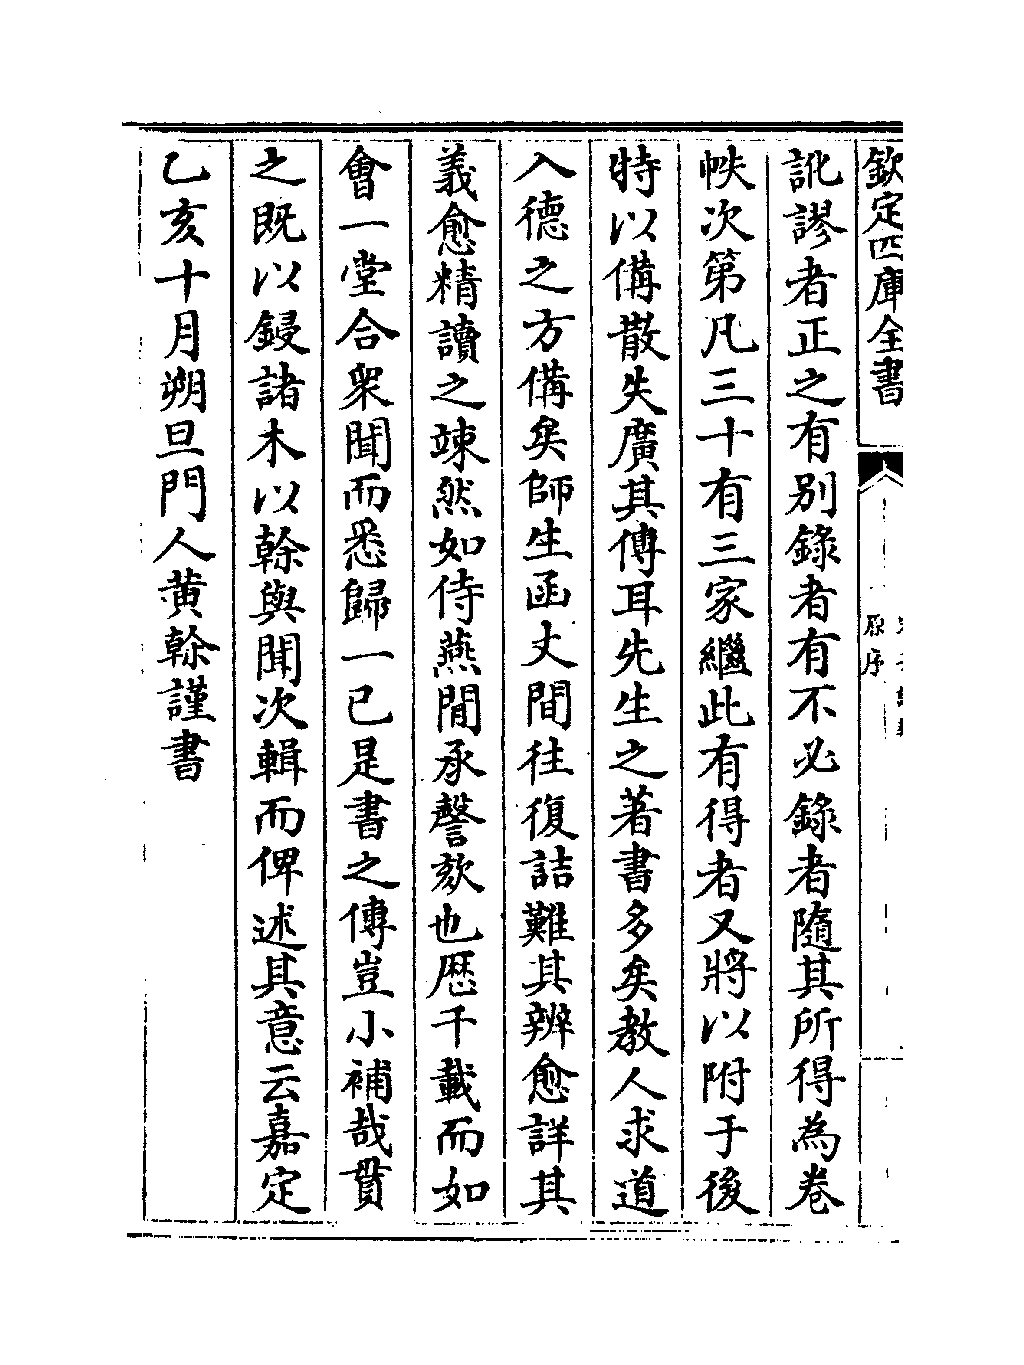 欽定四庫全書
原序
訛謬者正之有别錄者有不必錄者隨其所得為卷
帙次第凡三十有三家繼此有得者又將以附于後
特以備散失廣其傳耳先生之著書多矣教人求道
入德之方備矣師生函丈間往復詰難其辨愈詳其
義愈精讀之竦然如侍燕閒承謦欬也歴千載而如
會一堂合衆聞而悉歸一已是書之傳豈小補哉貫
之既以鋟諸木以榦與聞次輯而俾述其意云嘉定
乙亥十月朔旦門人黄榦謹書